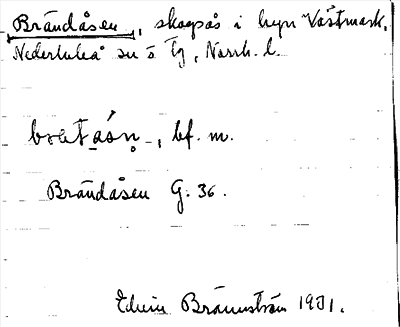 Brändåsen, skogsås i byn Västmark,
Nederluleå sn o. tg, Norrb. l.
bf. m.
Brändåsen G. 36.
Edvin Brännström 1931.